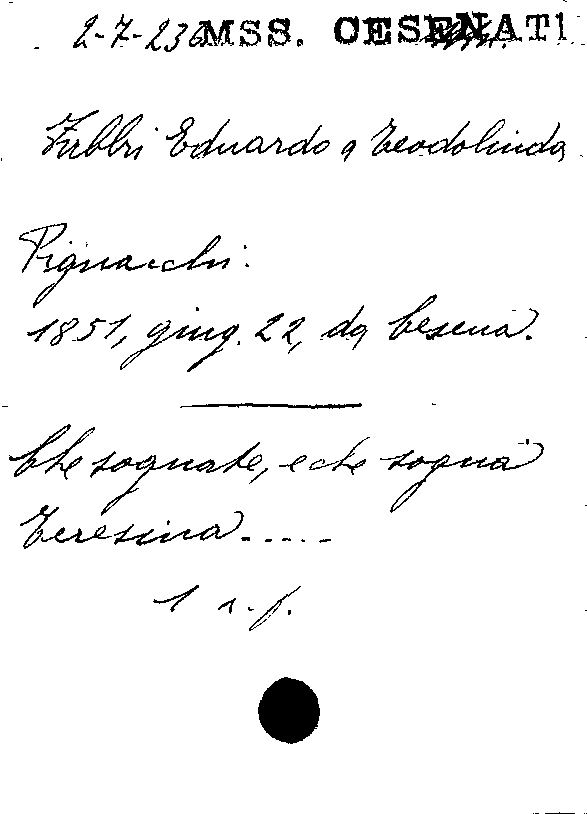 2-7-236 MSS. CESENATI
Fabbri Eduardo a Teodolinda
Pignacchi.
1851, giug. 22, da Cesena.
Che sognate, e che sogna
Teresina.....
1 n.f.